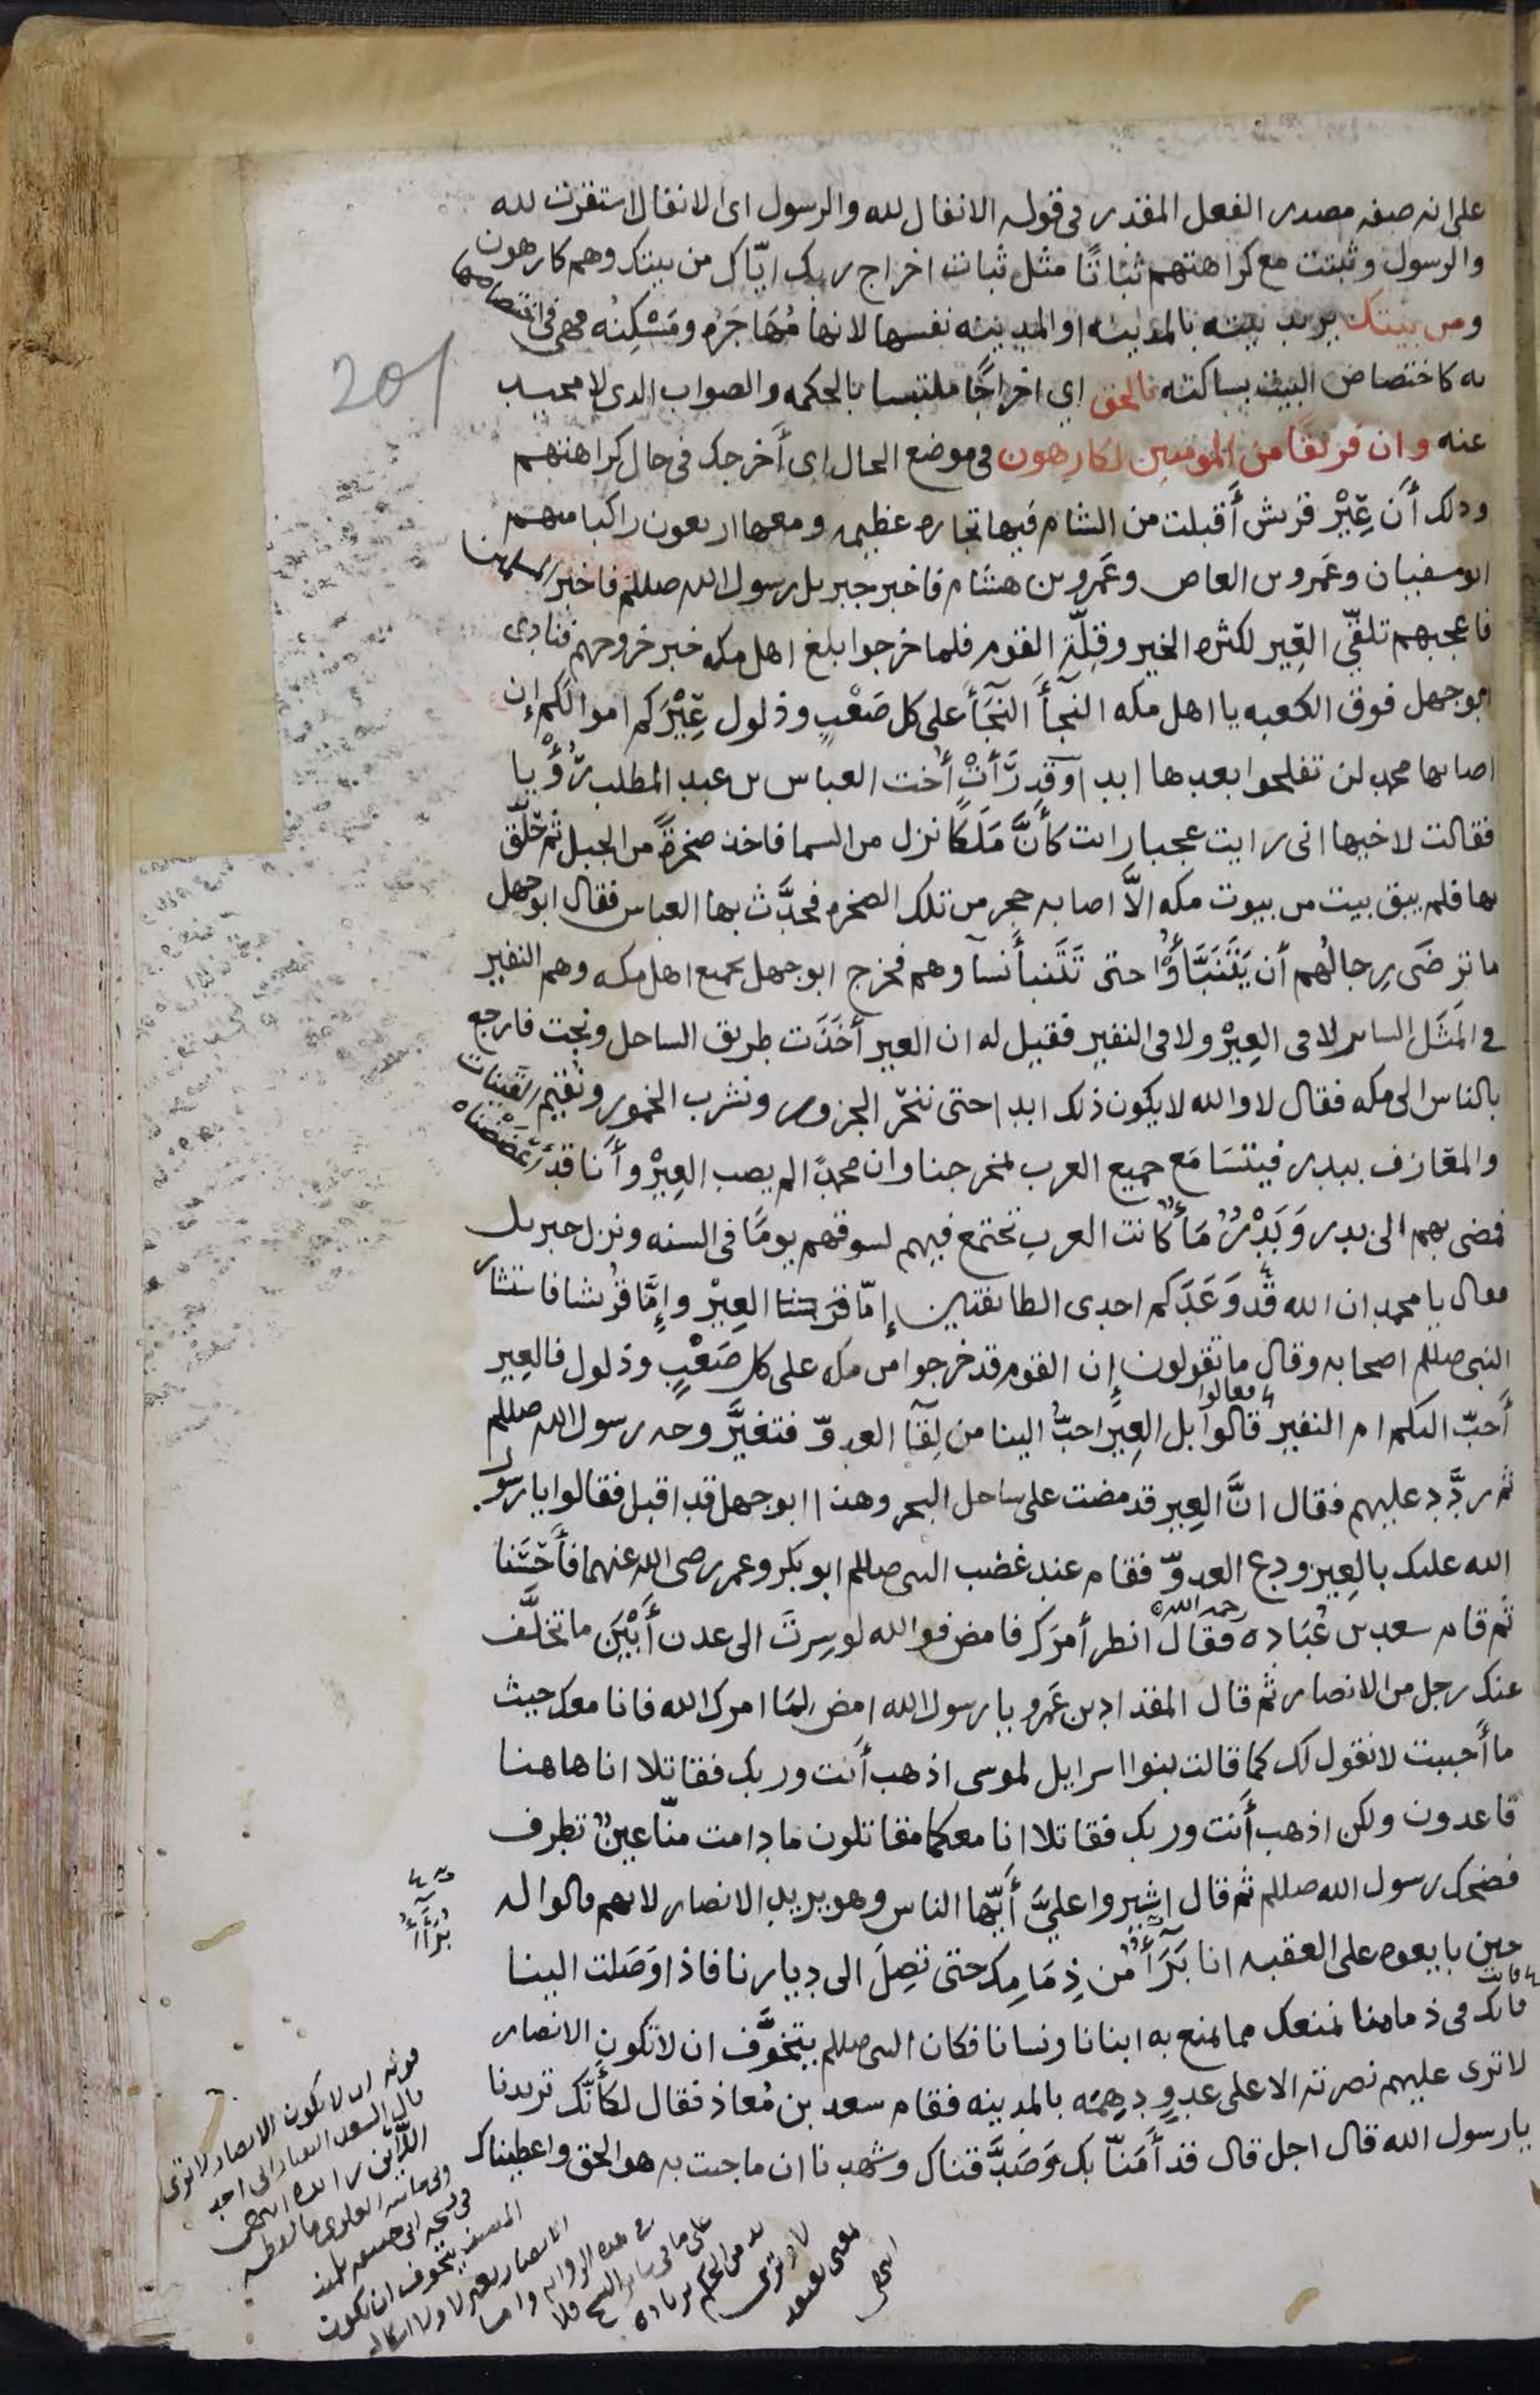 على انه صفه مصدر الفعل المقدر في قوله الانفال لله والرسول اى الانفال استقرت لله
والرسول وثبتت مع كراهتهم ثباتًا مثل ثبات اخراج ربك ايّاك من بيتك وهم كارهون
ومن بيتك يريد بيته بالمدينه او المدينه نفسها لانها مُهَاجَرُه ومَسْكِنُه فهى فى اختصاصها
به كاختصاص البيت بساكنه بالحق اي اخراجًا ملتبسا بالحكمه والصواب الدى لا محيد
عنه وان فريقًا من المومنين لكارهون في موضع الحال اى أخرجك فى حال كراهتهم
ودلك أن عِيْر قريش أقبلت من الشام فيها تجاره عظيمه ومعها اربعون راكبا منهم
ابوسفيان وعَمرو بن العاص وعَمرو بن هشام فاخبر جبريل رسول الله صللم فاخبر المسلمين
فاعجبهم تلقّي العِير لكثره الخير وقِلّة القوم فلما خرجوا بلغ اهل مكه خبر خروجهم فنادى
ابوجهل فوق الكعبه يا اهل مكه النجأ النجَأ على كل صَعْبٍ وذلول عِيْرَكم اموالكم إن
اصابها محمد لن تفلحوا بعدها ابدا وقد رَأتْ أخت العباس بن عبد المطلب رُؤْيا
فقالت لاخيها انى رايت عجبا رايت كأنَّ مَلَكًا نزل من السما فاخذ صخرةً من الجبل ثم حَلّق
بها فلم يبق بيت من بيوت مكه الاَّ اصابه حجر من تلك الصخره فحدَّث بها العباس فقال ابوجهل
ما نرضَى رِجالُهم أن يَتَنَبَّأوُا حتى تَتَنبأ نسآوهم فخرج ابوجهل بجميع اهل مكه وهم النفير
في المَثَل الساير لا في العِيْر ولا في النفير فقيل له ان العير أخَذَت طريق الساحل ونجت فارجع
بالناس الى مكه فقال لا والله لا يكون ذلك ابدا حتى ننحر الجزور ونشرب الخمور ونُقيم القَينات
والمعَازف ببدر فيتسَامَع جميع العرب لمخرجنا وان محمدًا لم يصب العِيْر وأنا قد أعضَضْناه
فمضى بهم الى بدر وَبَدْرٌ مَأٌ كانت العرب تجتمع فيهم لسوقهم يومًا فى السنه ونزل جبريل
فقال يا محمد ان الله قد وَعَدَكم احدى الطايفتين إمّا العِيْر وإمَّا قُريشا فاستشار
النبى صللم اصحابه وقال ما تقولون إن القوم قد خرجوا من مكه على كل صَعْبٍ وذلول فالعِير
أحبّ اليكم ام النفير قالوا بل العِير احبُّ الينا من لِقآ العدوّ فتغيَّر وجه رسول الله صللم
فقالوا
ثم ردَّد عليهم فقال انَّ العِير قد مضت على ساحل البحر وهذا ابوجهل قد اقبل فقالوا يا رسول
الله عليك بالعِير ودع العدوّ فقام عند غضب النبى صللم ابو بكر وعمر رضى الله عنهما فأحْسَنا
ثم قام سعد بن عُبَاده فقال انظر أمرَك فامض فوالله لو سِرتَ الى عدن أبْيَن ما تخلَّف
رحمه الله
عنك رجل من الانصار ثم قال المقداد بن عَمرو يا رسول الله امض لِمَا امرك الله فانا معك حيث
ما أحببت لا نقول لك كما قالت بنوا اسرايل لموسى اذهب أنت وربك فقاتلا انا هاهنا
قاعدون ولكن اذهب أنت وربك فقاتلا انا معكما مقاتلون ما دامت منّا عينٌ تطرف
فضحك رسول الله صللم ثم قال اشيروا عليَّ أيّها الناس وهو يريد الانصار لانهم قالوا له
حين بايعوه على العقبه انا بَرَآُ من ذِمَامِك حتى تصِلَ الى ديارنا فاذا وَصَلت الينا
فانك فى ذمامنا نمنعك مما نمنع به ابنانا ونسانا فكان النبى صللم يتخوَّف ان لا تكون الانصار
فانت
لا ترى عليهم نصرته الا على عدوٍ دهمَه بالمدينه فقام سعد بن مُعاذ فقال لكأنّك تريدنا
يا رسول الله قال اجل قال قد أمَنّا بك وَصَدَّقناك وشهدنا ان ما جيت به هو الحق واعطيناك
201
قوله ان لا يكون الانصار لا ترى
المصنف يتخوف ان يكون